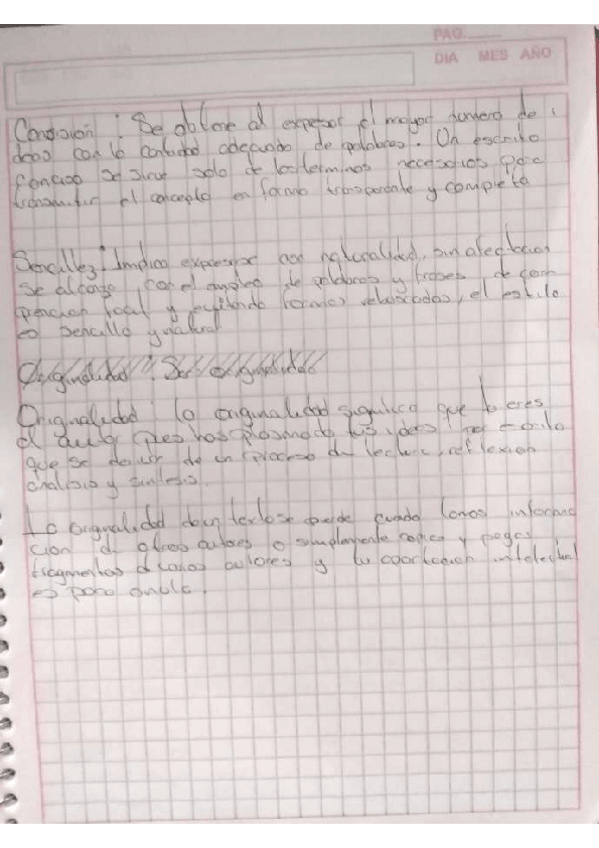 PAG.
DIA MES AÑO
Concisión : Se obtiene al expresar el mayor numero de i
deas con la cantidad adecuando de palabras. Un escrito
conciso se sirve solo de los terminos necesarios para
transmitir el concepto en forma transparente y completa
Sencillez : Implica expresarse con naturalidad, sin afectacion
se alcanza, con el empleo de palabras y frases de com
pencion facil y evitando formas rebuscadas, el estilo
es sencillo y natural
Originalidad : Ser originalidad
Originalidad : la originalidad significa que tu eres
el autor pues has plasmado tus ideas por escrito
que se derivan de un proceso de lectura, reflexion
analisis y sintesis.
La originalidad de un texto se pierde cuando tomas informa
cion de otros autores o simplemente copias y pegas
fragmentos de varios autores y tu aportacion intelectual
es poca o nula.